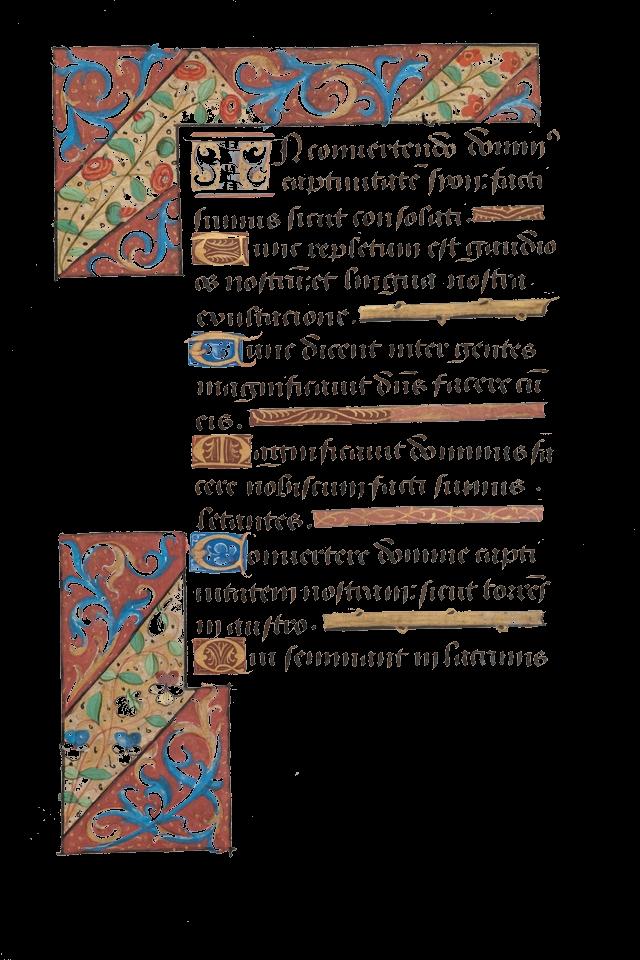 IN conuertendo domin9
captiuitatē syon: facti
sumus sicut consolati
Tunc repletum est gaudio
os nostrū: et lingua nostra
exultacione.
Tunc dicent inter gentes
magnificauit dn̄s facere cū
eis.
Magnificauit dominus fa
cere nobiscum facti sumus
letantes.
Conuertere domine capti
uitatem nostram: sicut torrēs
in austro.
Qui seminant in lacrimis